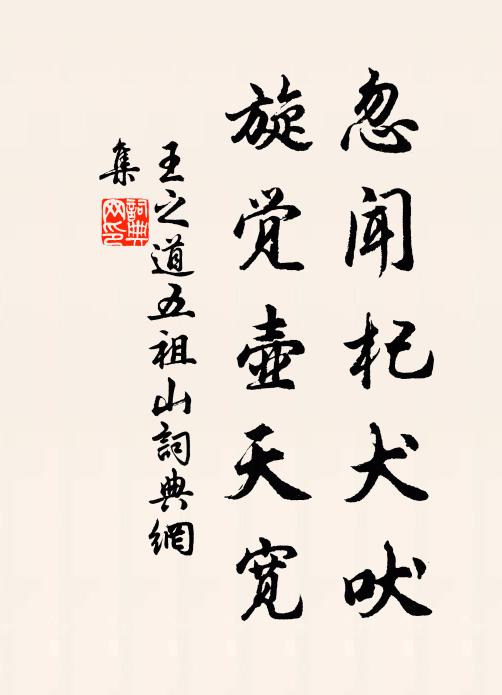 忽闻杞犬吠
旋觉壶天宽
王之道五祖山詞典網
集
詞典
网印